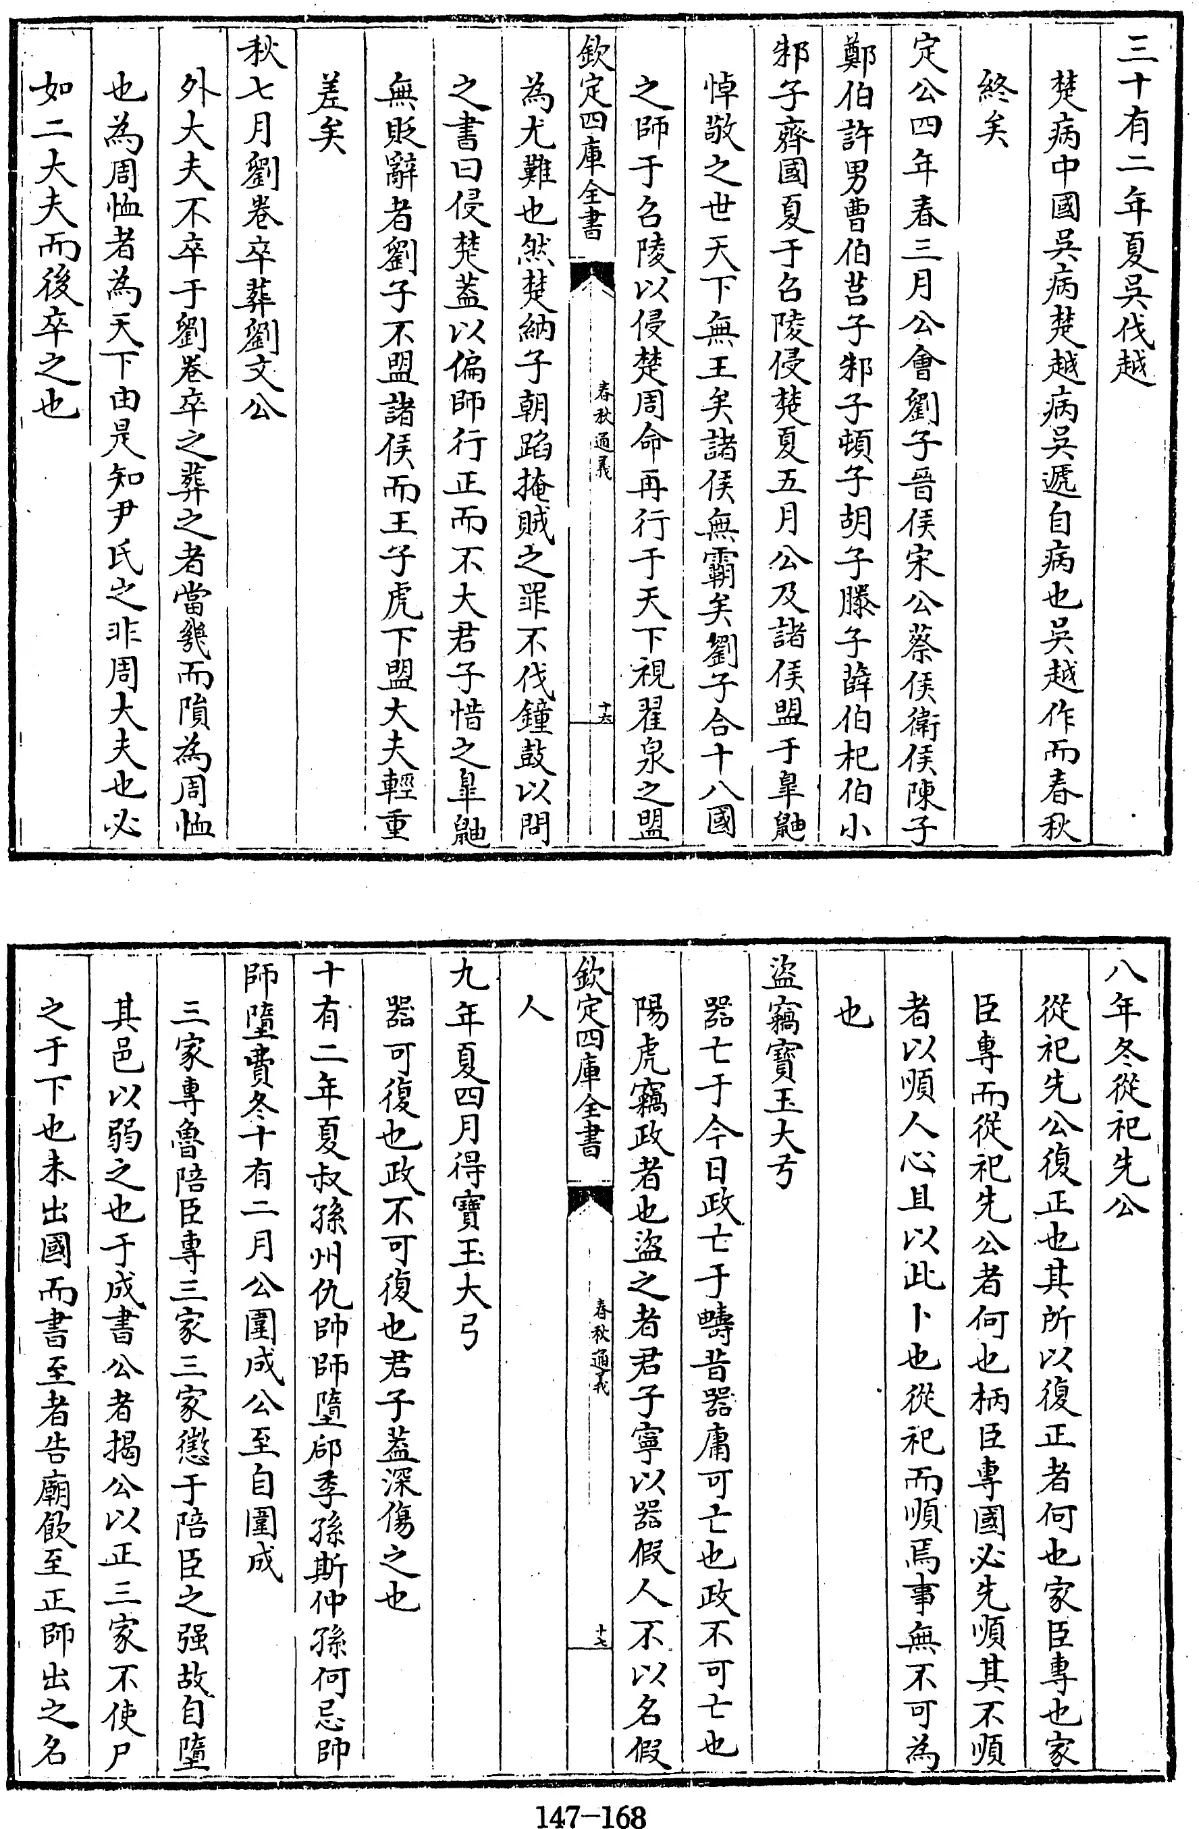 三十有二年夏吳伐越
楚病中國吳病楚越病吳遞自病也吳越作而春秋
終矣
定公四年春三月公會劉子晉侯宋公蔡侯衛侯陳子
鄭伯許男曹伯莒子邾子頓子胡子滕子薛伯杞伯小
邾子齊國夏于召陵侵楚夏五月公及諸侯盟于臯鼬
悼敬之世天下無王矣諸侯無霸矣劉子合十八國
之師于召陵以侵楚周命再行于天下視翟泉之盟
欽定四庫全書
春秋通義
十六
為尤難也然楚納子朝蹈掩賊之罪不伐鐘鼓以問
之書曰侵楚葢以偏師行正而不大君子惜之臯鼬
無貶辭者劉子不盟諸侯而王子虎下盟大夫輕重
差矣
秋七月劉卷卒葬劉文公
外大夫不卒于劉卷卒之葬之者當幾而隕為周恤
也為周恤者為天下由是知尹氏之非周大夫也必
如二大夫而後卒之也
八年冬從祀先公
從祀先公復正也其所以復正者何也家臣專也家
臣專而從祀先公者何也柄臣專國必先順其不順
者以順人心且以此卜也從祀而順焉事無不可為
也
盜竊寶玉大弓
器亡于今日政亡于疇昔器庸可亡也政不可亡也
陽虎竊政者也盜之者君子寧以器假人不以名假
欽定四庫全書
春秋通義
十七
人
九年夏四月得寶玉大弓
器可復也政不可復也君子葢深傷之也
十有二年夏叔孫州仇帥師墮郈季孫斯仲孫何忌帥
師墮費冬十有二月公圍成公至自圍成
三家專魯陪臣專三家三家懲于陪臣之强故自墮
其邑以弱之也于成書公者揭公以正三家不使尸
之于下也未出國而書至者告廟飲至正師出之名
147-168